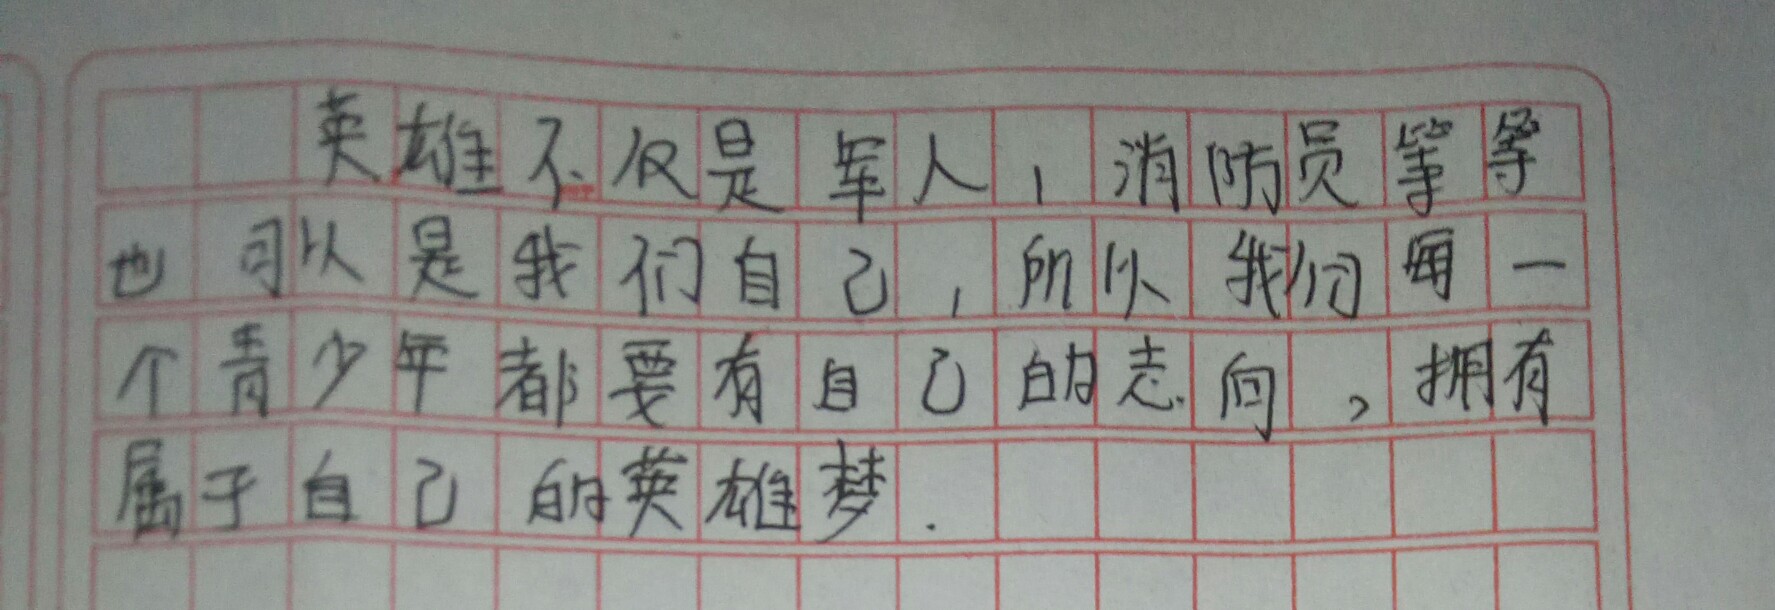 英雄不仅是军人，消防员等等
也可以是我们自己，所以我们每一
个青少年都要有自己的志向，拥有
属于自己的英雄梦.